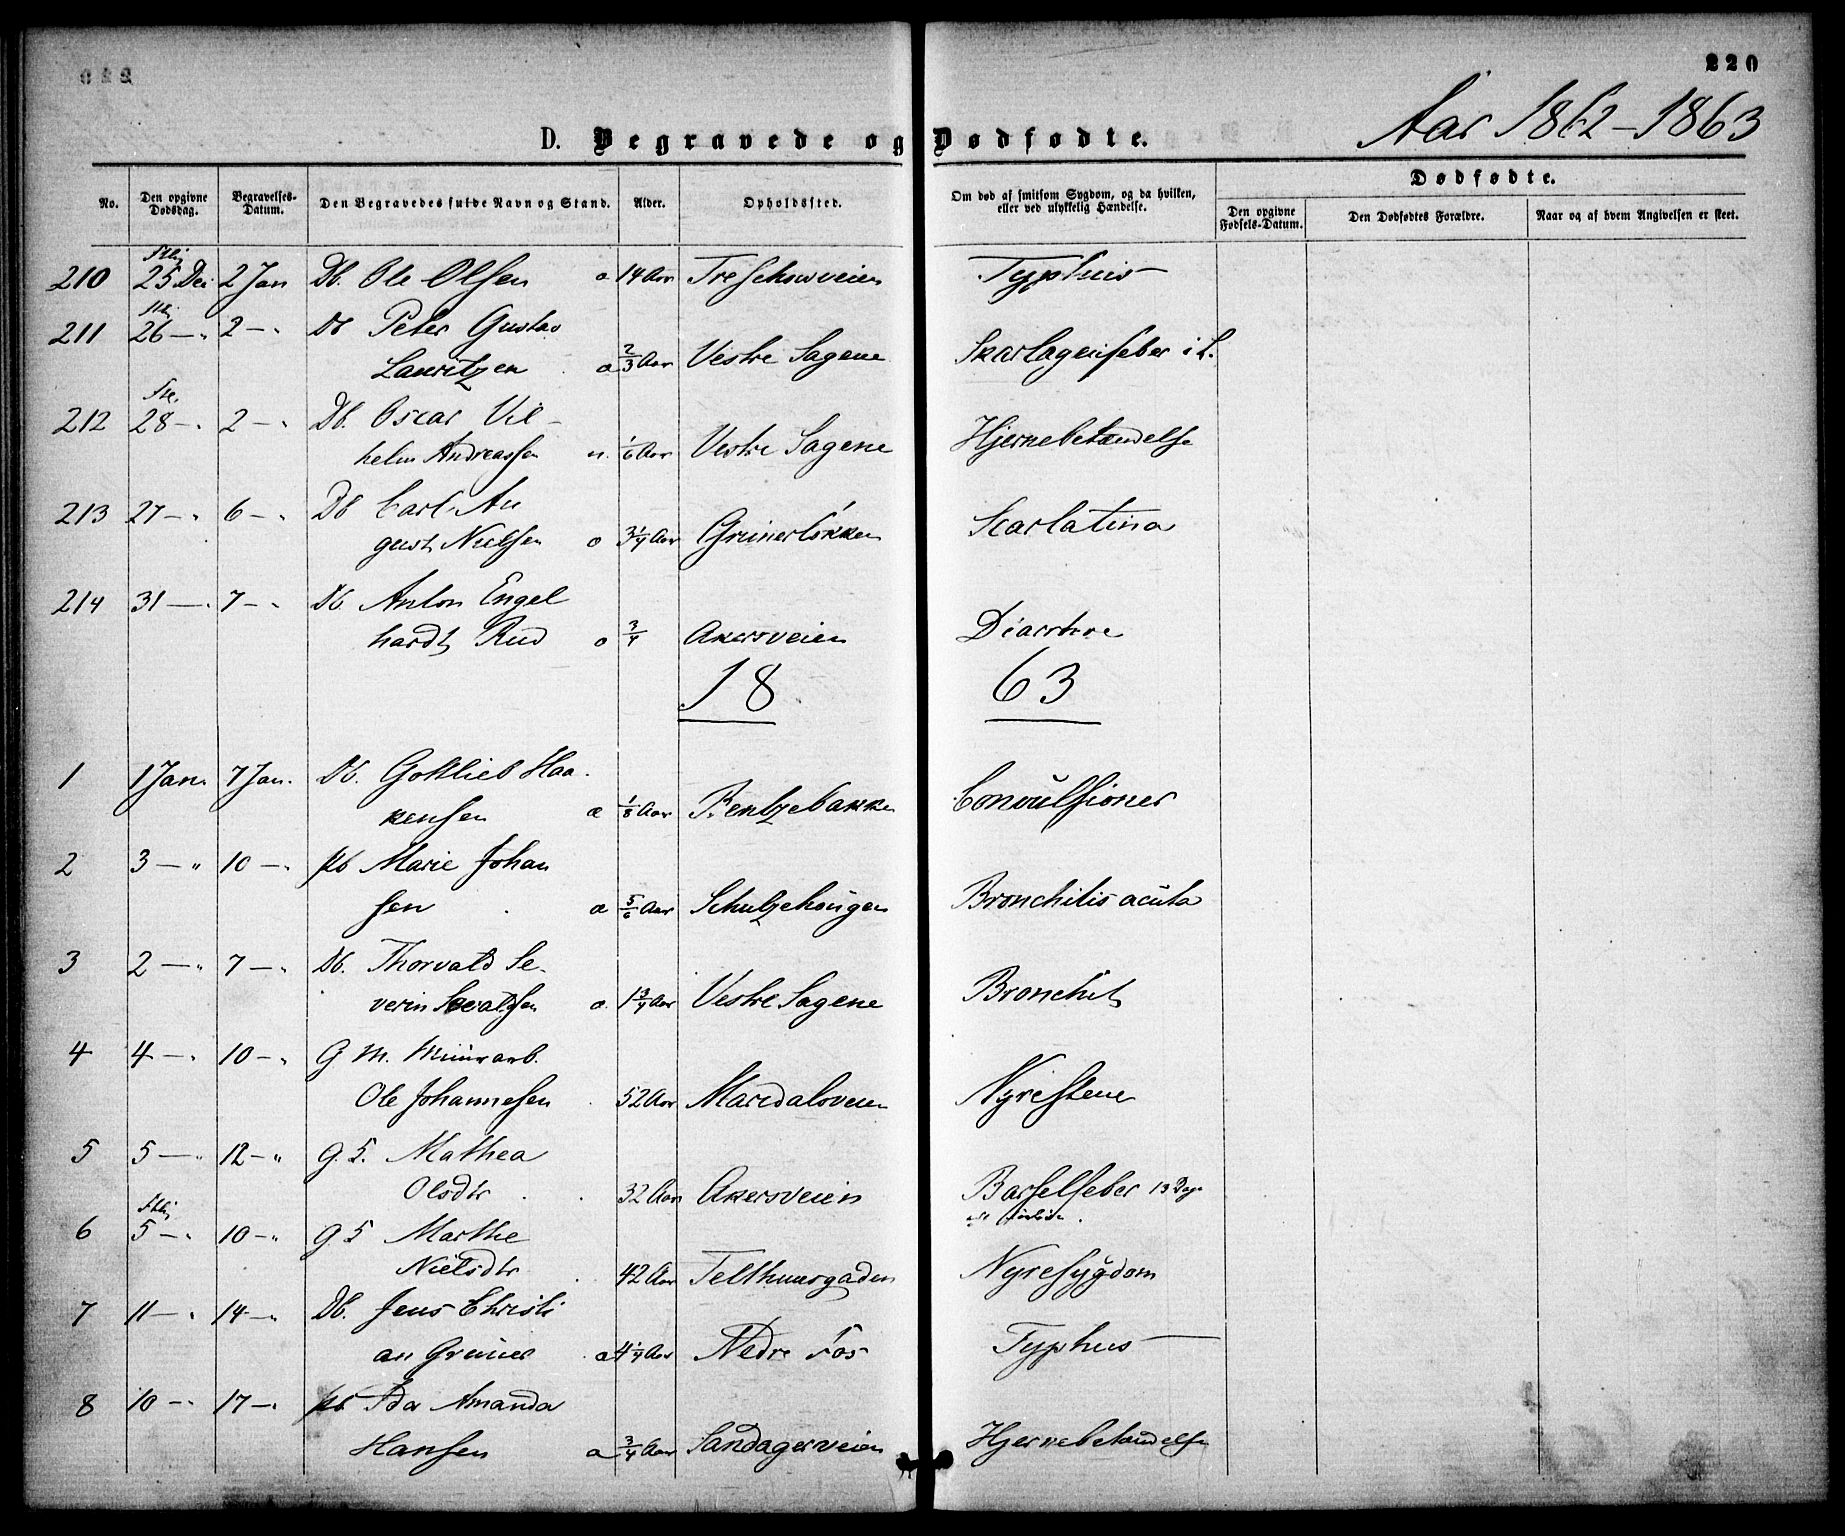 220
Aar 1862-1863
D. Begravede og Dødfødte.
No. Den opgivne Dødsdag. Begravelses-Datum. Den Begravedes fulde Navn og Stand. Alder. Opholdssted. Om død af smitsom Sygdom, og da hvilken, eller ved ulykkelig Hændelse. Dødfødte.
Den opgivne Fødsels-Datum. Den Dødfødtes Forældre. Naar og af hvem Angivelsen er skeet.
210 25 Dec 2 Jan Db. Ole Olsen a 14 Aar Treschowveien Typhus
211 26 — „ 2 — „ Db Peter Gustav
Lauritzen a 2/3 Aar Vestre Sagene Skarlagensfeber i L.
212 28 — „ 2 — „ Db. Oscar Vil-
helm Andreassen u. 1/6 Aar Vestre Sagene Hjernebetændelse
213 27 — „ 6 — „ Db Carl Au
gust Nielsen o 3 1/4 Aar Grünerløkken Scarlatina
214 31 — „ 7 — „ Db Anton Engel
hardt Rud o 3/4 Akersveien Diarrhoe
18 63
1 1 Jan. 7 Jan. Db. Gottlieb Haa-
kensen a 1/8 Aar Bentzebakken Convulsioner
2 3 — „ 10 — „ pb Marie Johan
sen a 5/6 Aar Schultzehougen Bronchitis acuta
3 2 — „ 7 — „ Db. Thorvald Se-
verin a. 1 3/4 Aar Vestre Sagene Bronchit
4 4 — „ 10 — „ G. M. Muurarb.
Ole Johannesen 52 Aar Maridalsveien Nyrestene
5 5 — „ 12 — „ G. K. Mathea
Olsdtr 32 Aar Akersveien Barselfeber 13 Dage
6 5 — „ 10 — „ G K Marthe
Nielsdtr 42 Aar Telthuusgaden Nyresygdom
7 11 — „ 14 — „ Db. Jens Christi
an Grüner a 4 1/4 Aar Nedre Fos Typhus
8 10 — „ 17 — „ pb Ida Amanda
Hansen a 3/4 Aar Sandagerveien Hjernebetændelse